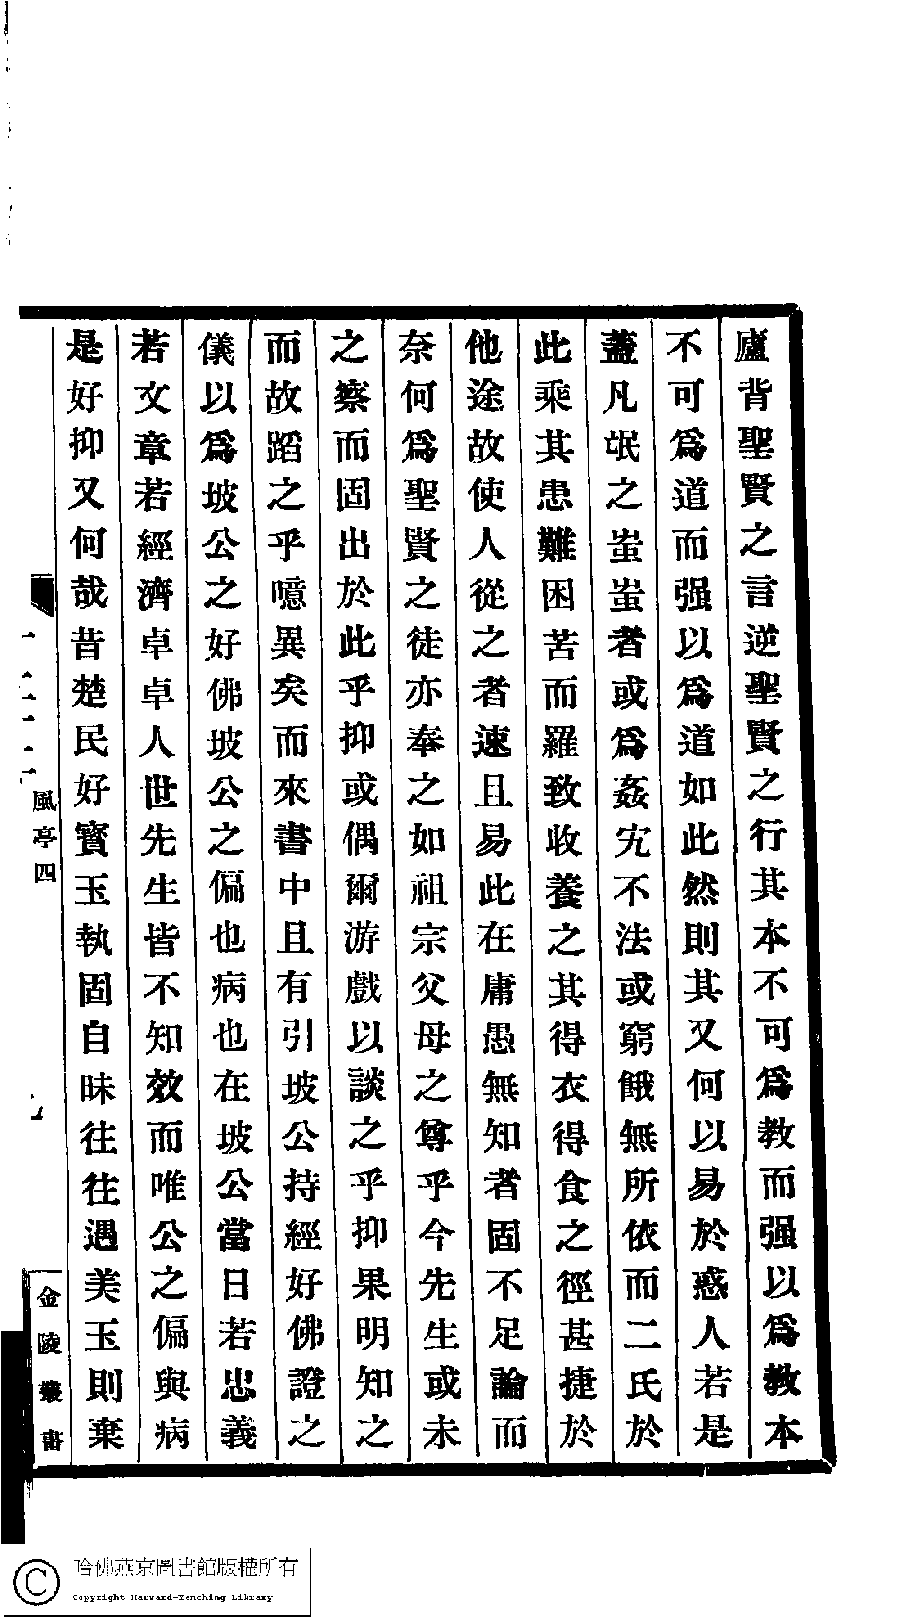 廬背聖賢之言逆聖賢之行其本不可爲教而强以爲教本
不可爲道而强以爲道如此然則其又何以易於惑人若是
蓋凡氓之蚩蚩者或爲姦宄不法或窮餓無所依而二氏於
此乘其患難困苦而羅致收養之其得衣得食之徑甚捷於
他途故使人從之者速且易此在庸愚無知者固不足論而
奈何爲聖賢之徒亦奉之如祖宗父母之尊乎今先生或未
之察而固出於此乎抑或偶爾游戲以談之乎抑果明知之
而故蹈之乎噫異矣而來書中且有引坡公持經好佛證之
儀以爲坡公之好佛坡公之偏也病也在坡公當日若忠義
若文章若經濟卓卓人世先生皆不知效而唯公之偏與病
是好抑又何哉昔楚民好寳玉執固自昧往往遇美玉則棄
風亭四
金陵叢書
哈佛燕京圖書館版權所有
Copyright Harvard-Yenching Library